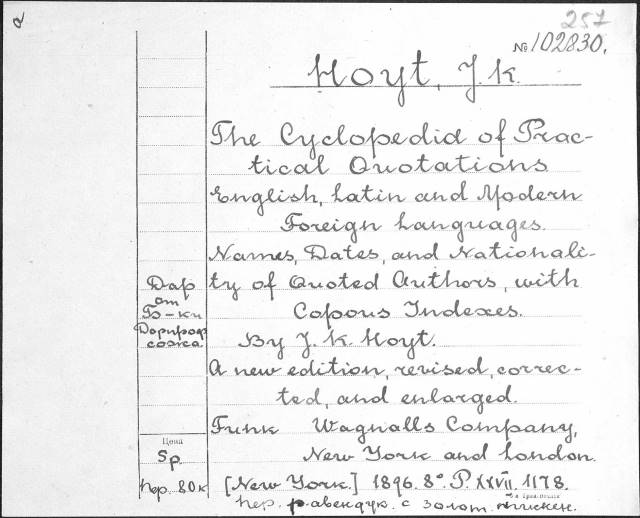 257
№102830.
Hoyt, J. K.
The Cyclopedia of Prac-
tical Quotations
English, Latin and Modern
Foreign Languages.
Names, Dates, and Nationali-
ty of Quoted Authors, with
Copous Indexes.
By J. K. Hoyt.
A new edition, revised, correc-
ted, and enlarged.
Funk Wagnalls Company,
New York and London.
[New York.] 1896. 8° P. XXVII. 1178.
пер. р. авендук. с золот. тиснен.
Дар
от
Б-ки
Дорпроф
сожа.
Цена
5 р.
пер. 80 к